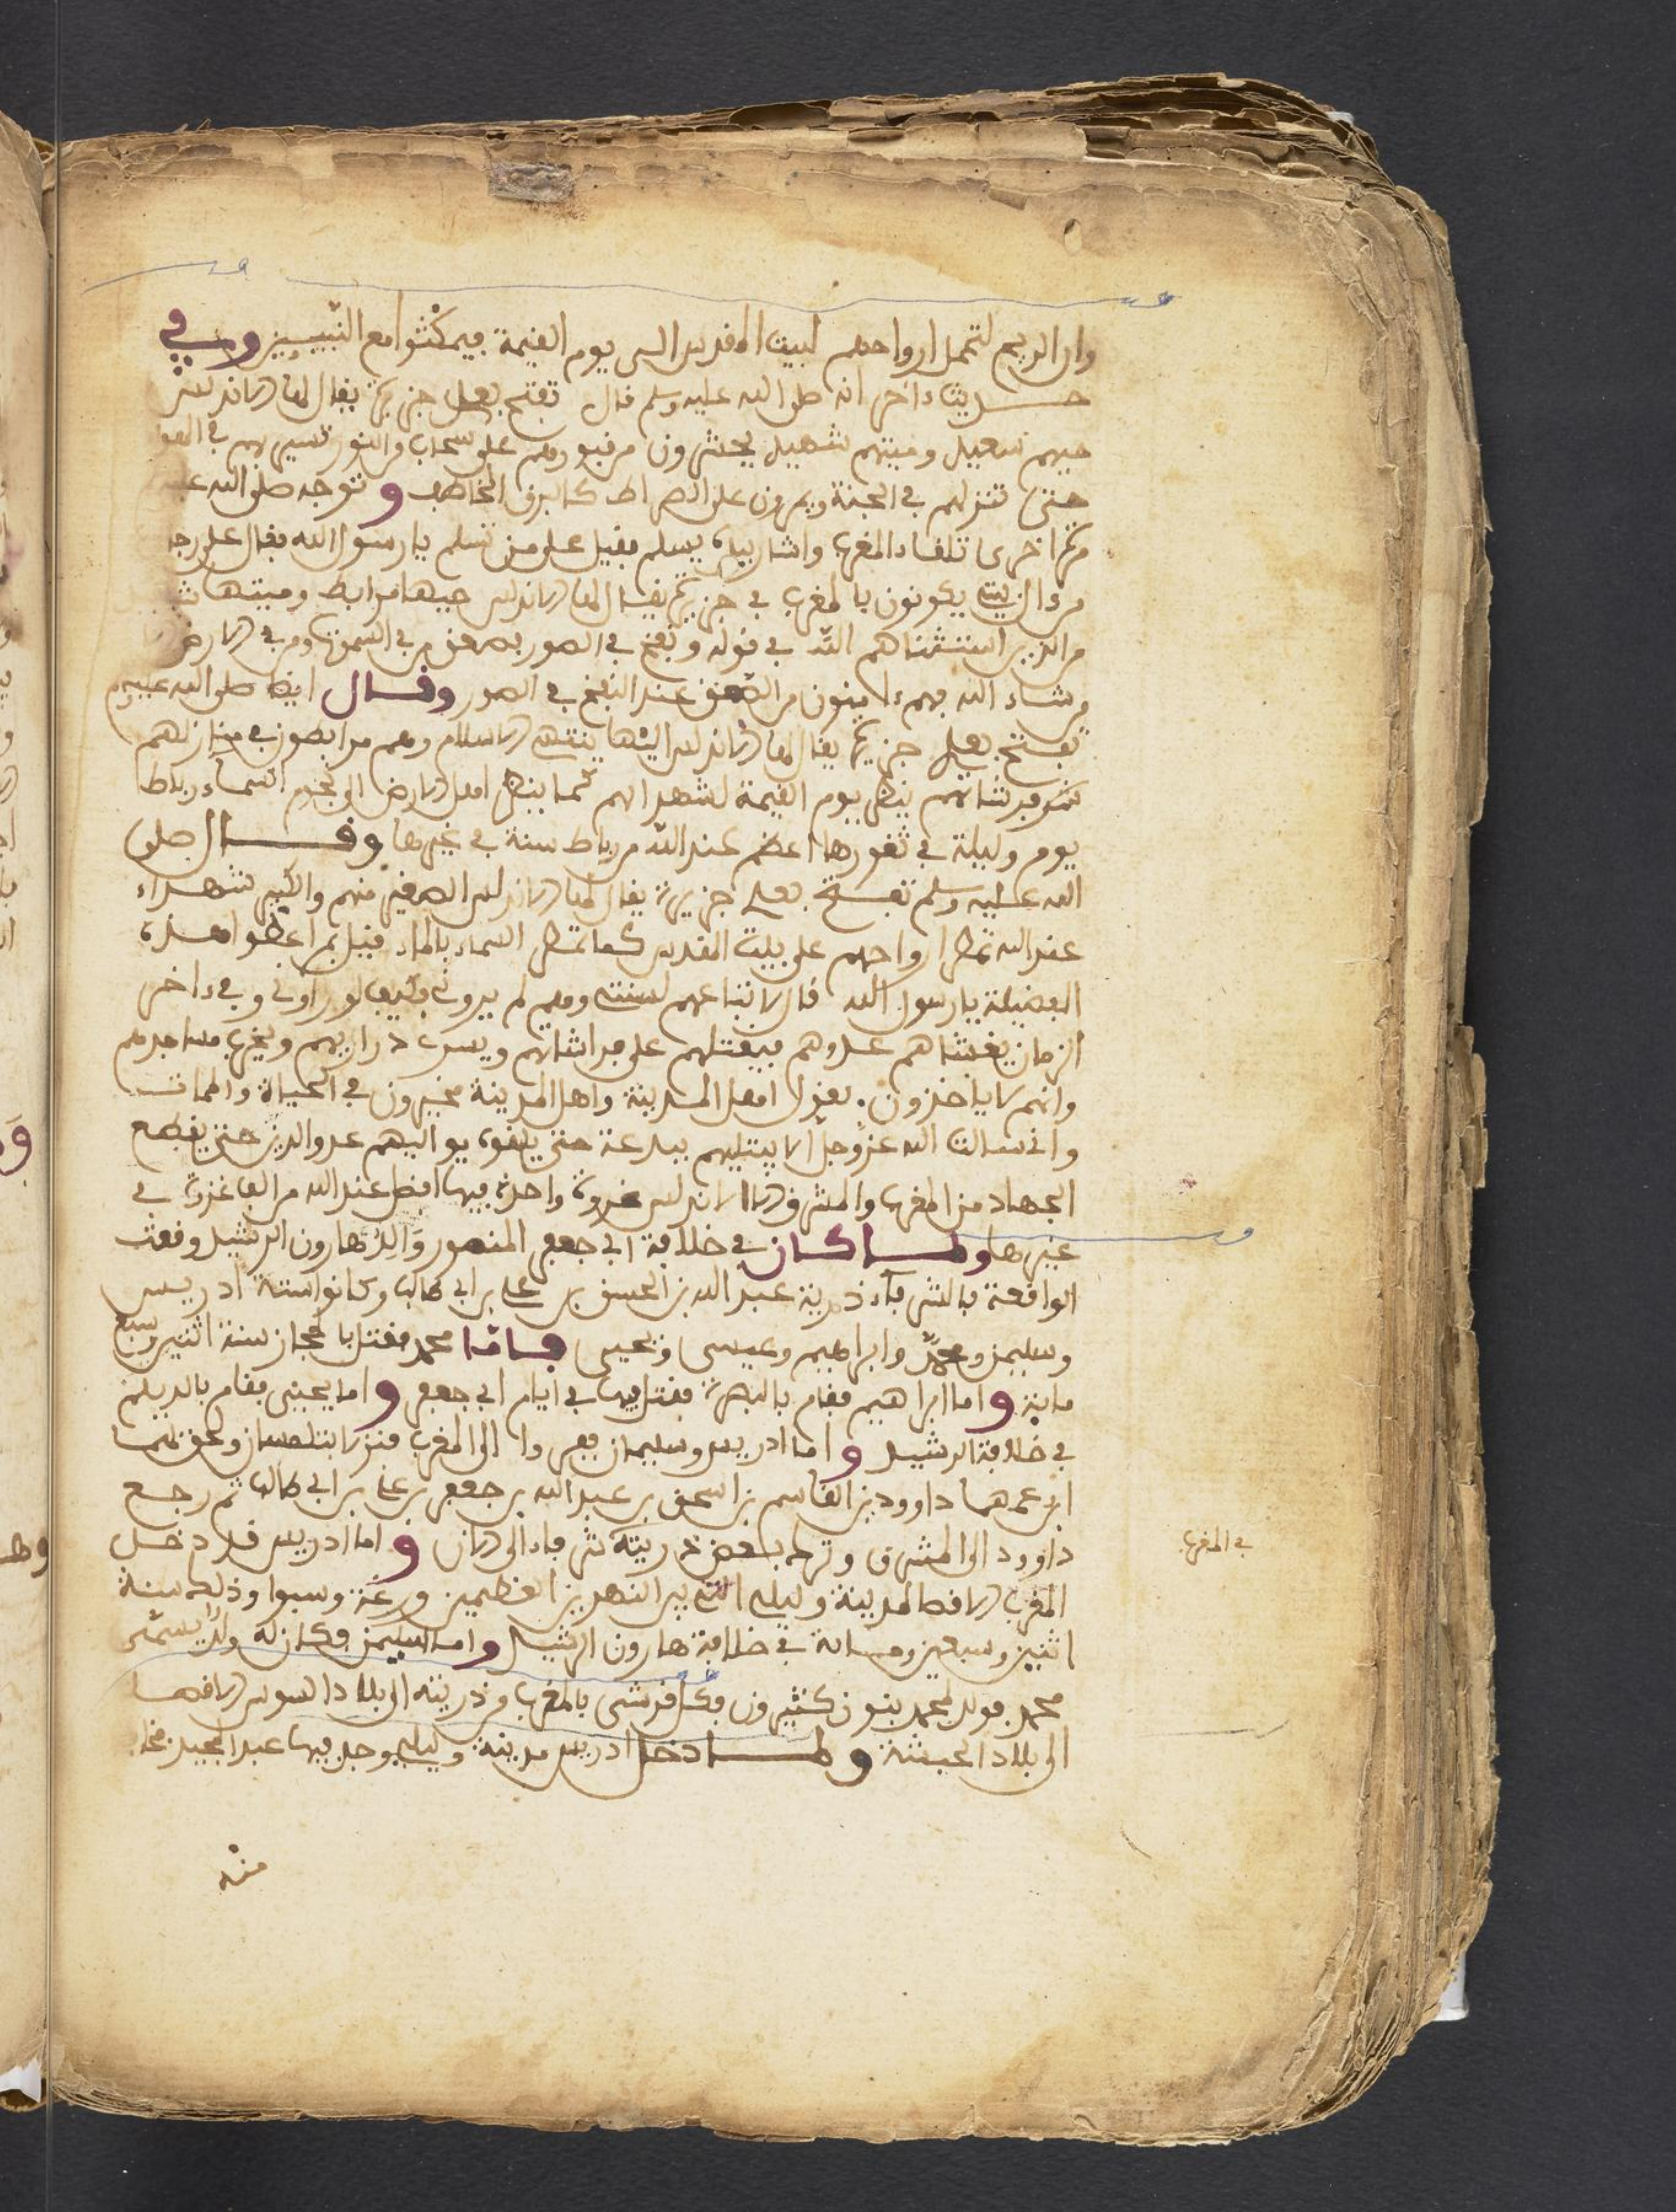 وان الريح لتحمل ارواحهم لبيت المقدس الى يوم القيمة فيمكثوا مع النبيين وفي
حديث ءاخر انه صلى الله عليه وسلم قال تفتح بعدي جزيرة يقال لها الاندلس
حيهم سعيد وميتهم شهيد يحشرون من قبورهم على سحاب من النور تسير بهم في الهوا
حتى تنزلهم في الجنة ويمرون على الصراط كالبرق الخاطف و توجه صلى الله عليه
مرة اخرى تلقاء المغرب واشار بيده يسلم فقيل على من تسلم يا رسول الله فقال على رجا
من امتي يكونون بالمغرب في جزيرة يقال لها الاندلس حيها مرابط وميتها شـ
من الذين استثناهم الله في قوله ونفخ في الصور فصعق من في السموات ومن في الارض
من شاء الله فهم ءامنون من الصعق عند النفخ في الصور وقال ايضا صلى الله عليه وسلم
تفتح بعدي جزيرة يقال لها الاندلس اليها ينتهي الاسلام وهم مرابطون في منازلهم
فرشاتهم ينظر يوم القيمة لشهدائهم كما ينظر اهل الارض الى نجوم السماء رباط
يوم وليلة في ثغورها اعظم عند الله من رباط سنة في غيرها وقال صلى
الله عليه وسلم تفتح بعدي جزيرة يقال لها الاندلس الصغير منهم والكبير شهداء
عند الله تمطر ارواحهم على بيت المقدس كما تمطر السماء بالماء قيل بم اعطوا هذه
الفضيلة يا رسول الله قال لاتباعهم لسنتي وهم لم يروني فكيف لو راوني وفي ءاخر
الزمان يغشاهم عدوهم فيقتلهم على فراشاتهم ويسبى ذراريهم ويخرب مساجدهم
وانهم لا ياخذون بقول اهل المدينة واهل المدينة مخيرون في الحياة والممات
واني سالت الله عز وجل الا يبتليهم ببدعة حتى يلقوه يواليهم عدو الدين حتى يقطع
الجهاد من المغرب والمشرق الا الاندلس غزوة واحدة فيها افضل عند الله من الف غزوة في
غيرها ولما كان في خلافة ابي جعفر المنصور والد هارون الرشيد وقعت
الواقعة بالشرفاء ذرية عبد الله بن الحسن بن علي بن ابي طالب وكانوا ستة ادريس
وسليمن ومحمد وابراهيم وعيسى ويحيى فاما محمد فقتل بالحجاز سنة اثنين وسبع
ماية و اما ابراهيم فقام بالبصرة فقتل فيها في ايام ابي جعفر و اما يحيى فقام بالديلم
في خلافة الرشيد و اما ادريس وسليمان ففروا الى المغرب فنزلا بتلمسان ولحق بهما
ابن عمهما داوود بن القاسم بن اسحق بن عبد الله بن جعفر بن علي بن ابي طالب ثم رجع
داوود الى المشرق وترك بعض ذريته شرفاء الى الان و اما ادريس فلد دخل
المغرب الاقصا لمدينة وليلي التي بين النهرين العظيمين ورغة وسبوا وذلك سنة
اثنين وسبعين ومائة في خلافة هارون الرشيد واما سليمن فكان له ولد يسمى
محمد فولد لمحمد بنون كثيرون فكل قرشي بالمغرب من ذريته الى بلاد السوس الاقصا
الى بلاد الحبشة ولما دخل ادريس مدينة وليلي وجد فيها عبد المجيد فخـ
منه
في المغرب